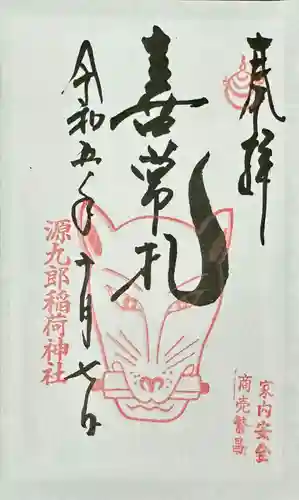 奉拝
喜常札
令和五年十月七日
源九郎稲荷神社
家内安全
商売繁昌